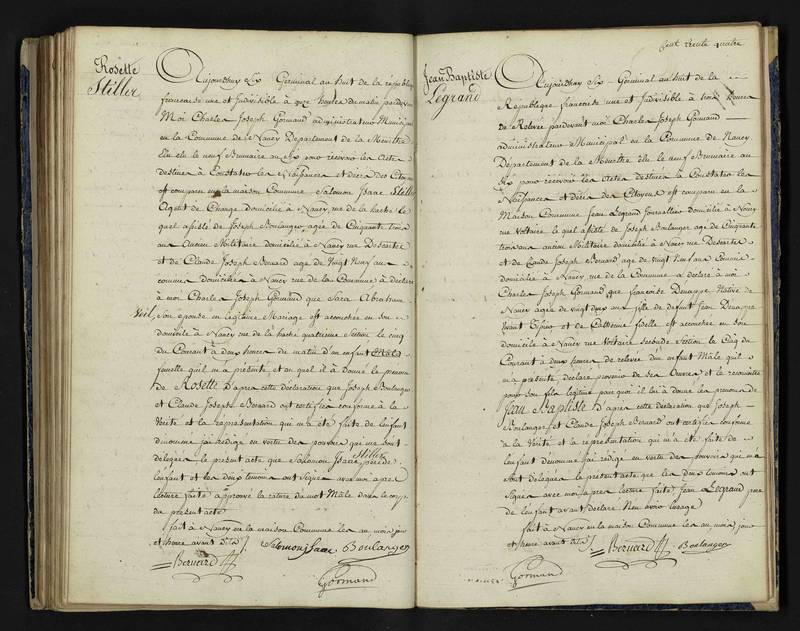 Rosette
Stiller
Aujourdhuy Six Germinal an huit de la république
francaise une et Indivisible à onze heures du matin pardevant
Moi Charles Joseph Gormand administrateur Municipal
en la Commune de Nancy Département de la Meurthe
élu le neuf Brumaire an Six pour recevoir les Actes
destinés à Constater les Naissances et décès des Citoyens
est comparu en la maison Commune, Salomon Isaac Stiller
Agent de Change domicilié à Nancy rue de la hache le
quel assisté de Joseph Boulanger, agée de Cinquante trois
ans Ancien Militaire domicilié à Nancy rue Descartes
et de Claude Joseph Bernard age de Vingt Neuf ans
commis domicilié à Nancy rue de la Commune à déclaré
à moi Charles Joseph Gormand que Sara Abraham
Veil, Son épouse en légitime Mariage est accouchée en son
domicile à Nancy rue de la hache quatrieme Section le cinq
du Courant à deux heures du matin d'un enfant Mâle
femelle qu'il m'a présenté et au quel il à donné le prenom
de Rosette D'après cette déclaration que Joseph Boulanger
et Claude Joseph Bernard ont certifiés conforme à la
Vérité et la représentation qui m'a été faite de l'enfant
dénommé j'ai rédigé en vertu des pouvoirs qui me sont
délégués le présent acte que Salomon Isaac Stiller père de
l'enfant et les deux témoins ont Signé avec moi après
lecture faite approuvé la rature du mot Mâle dans le corps
du présent acte
fait à Nancy en la maison Commune les an, mois jour
et heure avant dits
Salomon isaac Boulanger
Bernard
Gormand
Cent trente quatre
Jean Baptiste
Legrand
Aujourdhuy Six Germinal an huit de la
République francaise une et Indivisible à trois heures
de Relevée pardevant moi Charles Joseph Gormand
administrateur Municipal en la Commune de Nancy
Département de la Meurthe élu le neuf Brumaire an
Six pour recevoir les Actes destinés à Constater les
Naissances et décès des Citoyens est comparu en la
Maison Commune Jean Legrand Journallier domicilié à Nancy
rue Voltaire le quel assisté de Joseph Boulanger age de Cinquante
trois ans ancien Militaire domicilié à Nancy rue Descartes
et de Claude Joseph Bernard age de Vingt Neuf ans Commis
domicilié à Nancy rue de la Commune a déclaré à moi
Charles Joseph Gormand que francoise Native de
Nancy agée de Vingt deux ans fille de defunt Jean
Vivant et de Catherine est accouchée en son
domicile à Nancy rue Voltaire Seconde Section le Cinq du
Courant à deux heures de relevée d'un enfant Mâle qu'il
m'a présenté déclaré provenir de ses Œuvres et le reconnoitre
pour son fils légitime par quoi il lui à donné les prenoms de
Jean Baptiste D'après cette déclaration que Joseph
Boulanger et Claude Joseph Bernard ont certifiés conforme
à la Vérité et la représentation qui m'a été faite de
l'enfant dénommé j'ai rédigé en vertu des pouvoirs qui m'a
sont délégués le présent acte que les deux témoins ont
Signé avec moi après lecture faite Jean Legrand pere
de l'enfant ayant déclaré N'en avoir l'usage
fait à Nancy en la maison Commune les an, mois jour
et heure avant dits
Bernard Boulanger
Gormand